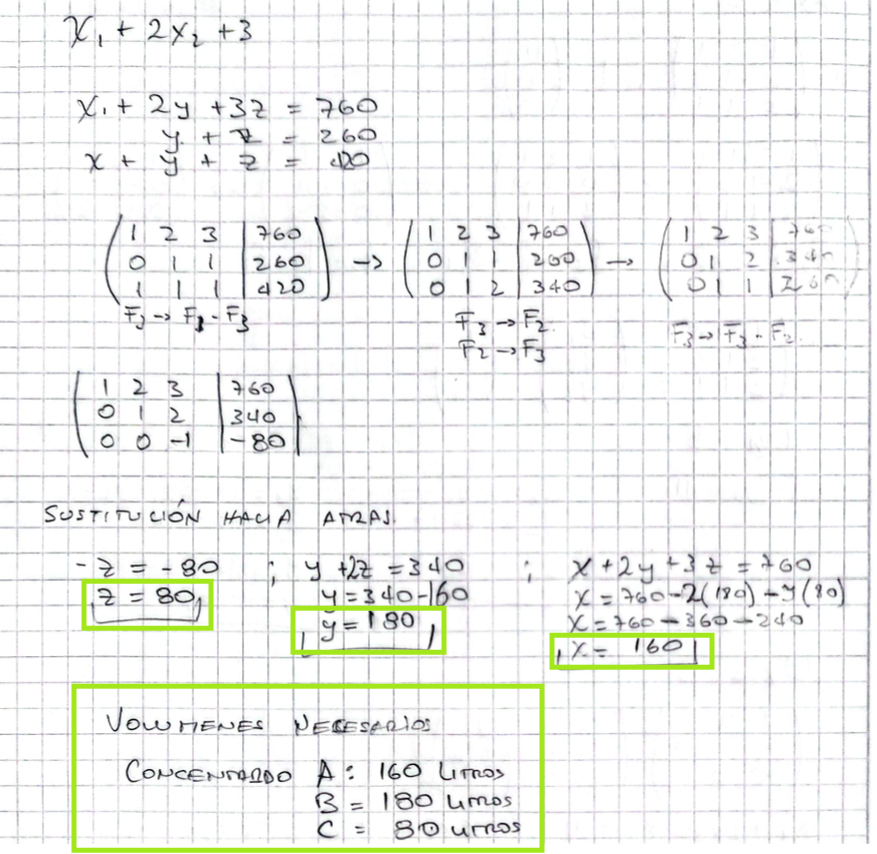 x₁ + 2x₂ + 3
x₁ + 2y + 3z = 760
y + z = 260
x + y + z = 420
( 1 2 3 | 760 ) → ( 1 2 3 | 760 ) → ( 1 2 3 | 760 )
( 0 1 1 | 260 ) ( 0 1 1 | 260 ) ( 0 1 2 | 340 )
( 1 1 1 | 420 ) ( 0 1 2 | 340 ) ( 0 1 1 | 260 )
F₃ → F₁ - F₃
F₃ → F₂
F₂ → F₃
F₃ → F₃ - F₂
( 1 2 3 | 760 )
( 0 1 2 | 340 )
( 0 0 -1 | -80 )
SUSTITUCIÓN HACIA ATRAS.
-z = -80 ; y + 2z = 340 ; x + 2y + 3z = 760
z = 80 y = 340 - 160 x = 760 - 2(180) - 3(80)
y = 180 x = 760 - 360 - 240
x = 160
VOLUMENES NECESARIOS
CONCENTRADO A: 160 LITROS
B = 180 LITROS
C = 80 LITROS